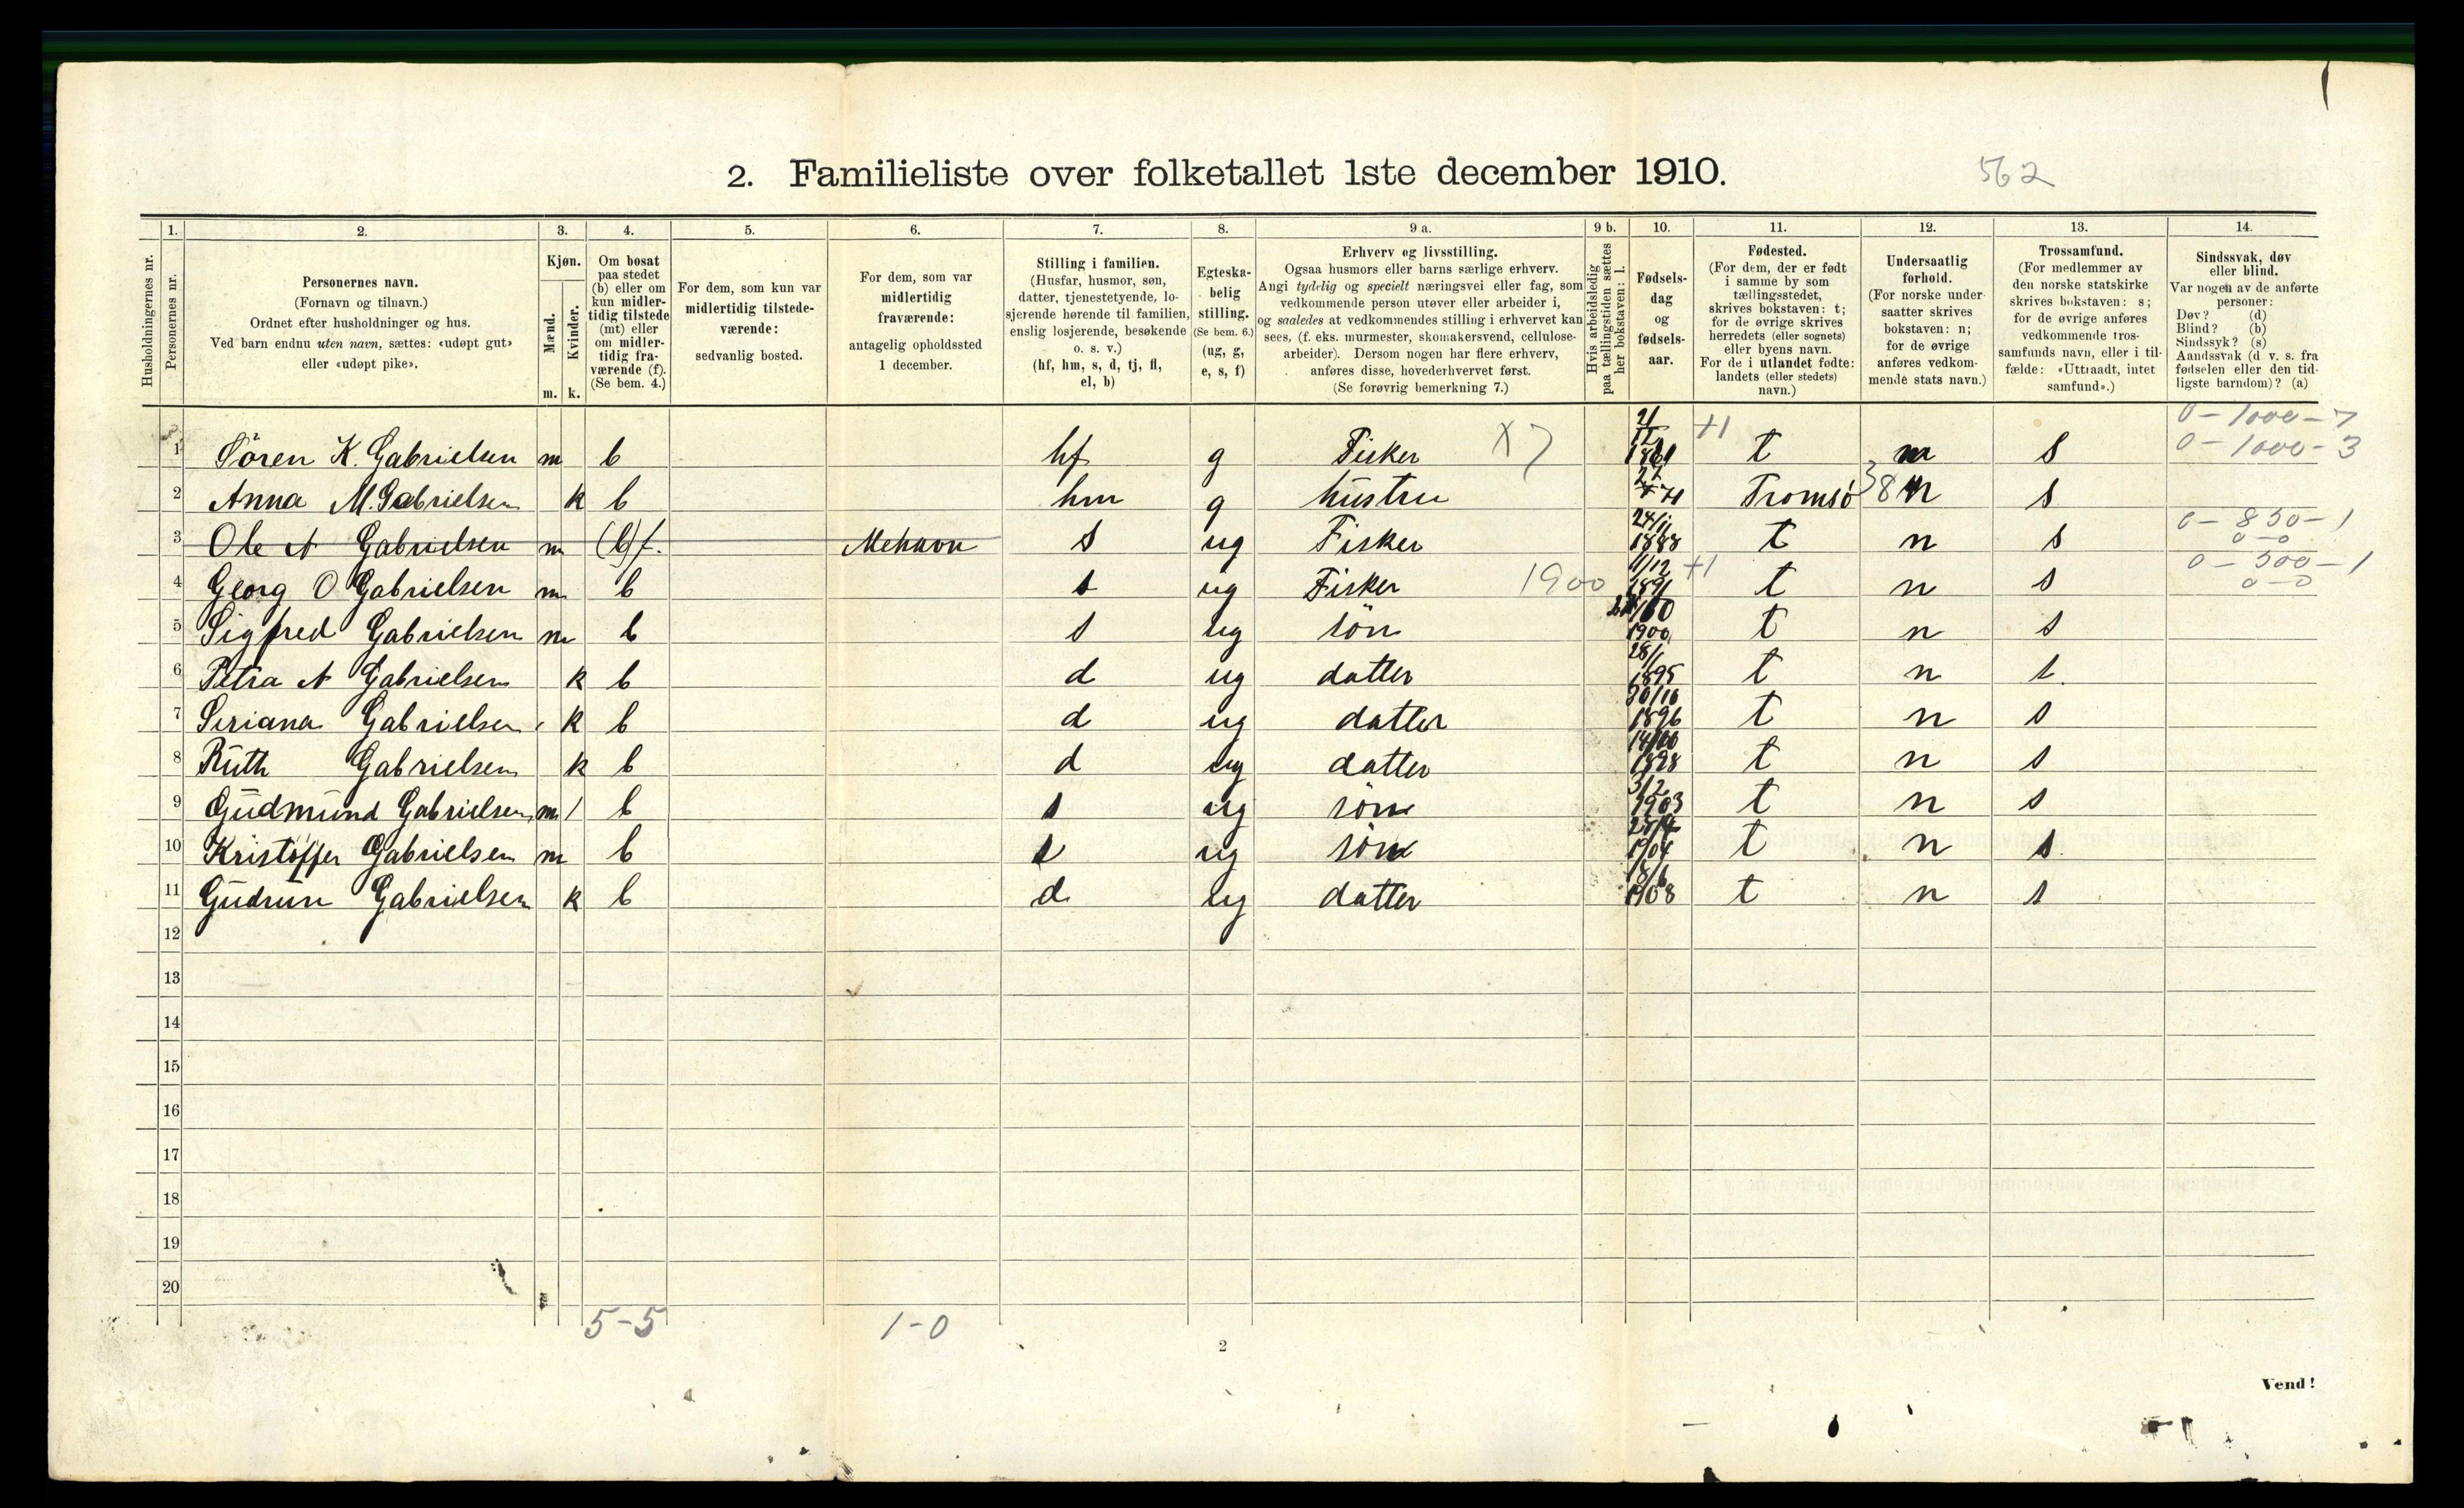 2. Familieliste over folketallet 1ste december 1910.
562
1. 2. 3. 4. 5. 6. 7. 8. 9 a. 9 b. 10. 11. 12. 13. 14.
Husholdningernes nr.
Personernes nr.
Personernes navn.
(Fornavn og tilnavn.)
Ordnet efter husholdninger og hus.
Ved barn endnu uten navn, sættes: «udøpt gut»
eller «udøpt pike».
Kjøn.
Mænd.
Kvinder.
m. k.
Om bosat
paa stedet
(b) eller om
kun midler-
tidig tilstede
(mt) eller
om midler-
tidig fra-
værende (f).
(Se bem. 4.)
For dem, som kun var
midlertidig tilstede-
værende:
sedvanlig bosted.
For dem, som var
midlertidig
fraværende:
antagelig opholdssted
1 december.
Stilling i familien.
(Husfar, husmor, søn,
datter, tjenestetyende, lo-
sjerende hørende til familien,
enslig losjerende, besøkende
o. s. v.)
(hf, hm, s, d, tj, fl,
el, b)
Egteska-
belig
stilling.
(Se bem. 6.)
(ug, g,
e, s, f)
Erhverv og livsstilling.
Ogsaa husmors eller barns særlige erhverv.
Angi tydelig og specielt næringsvei eller fag, som
vedkommende person utøver eller arbeider i,
og saaledes at vedkommendes stilling i erhvervet kan
sees, (f. eks. murmester, skomakersvend, cellulose-
arbeider). Dersom nogen har flere erhverv,
anføres disse, hovederhvervet først.
(Se forøvrig bemerkning 7.)
Hvis arbeidsledig
paa tællingstiden sættes
her bokstaven: l.
Fødsels-
dag
og
fødsels-
aar.
Fødested.
(For dem, der er født
i samme by som
tællingsstedet,
skrives bokstaven: t;
for de øvrige skrives
herredets (eller sognets)
eller byens navn.
For de i utlandet fødte:
landets (eller stedets)
navn.)
Undersaatlig
forhold.
(For norske under-
saatter skrives
bokstaven: n;
for de øvrige
anføres vedkom-
mende stats navn.)
Trossamfund.
(For medlemmer av
den norske statskirke
skrives bokstaven: s;
for de øvrige anføres
vedkommende tros-
samfunds navn, eller i til-
fælde: «Uttraadt, intet
samfund».)
Sindssvak, døv
eller blind.
Var nogen av de anførte
personer:
Døv? (d)
Blind? (b)
Sindssyk? (s)
Aandssvak (d v. s. fra
fødselen eller den tid-
ligste barndom)? (a)
0-1000-7
1 Sören K. Gabrielsen m b hf g Fisker X7 1861 +1 t n s 0-1000-3
2 Anna M. Gabrielsen k b hm g hustru 71 Tromsö 38 n s
3 Ole A Gabrielsen m (b) f. Mehavn s ug Fisker 24/11 1888 t n s 0-850-1 0-0
4 Georg O Gabrielsen m b s ug Fisker 1900 11/12 1891 +1 t n s 0-300-1 0-0
5 Sigfred Gabrielsen m b s ug sön 1900 t n s
6 Petra A Gabrielsen k b d ug datter 28/1 1895 t n s.
7 Seriana Gabrielsen k b d ug datter 30/10 1896 t n s
8 Ruth Gabrielsen k b d ug datter 1898 t n s
9 Gudmund Gabrielsen m b s ug sön 3/2 1903 t n s
10 Kristoffer Gabrielsen m b s ug sön 28/4 1904 t n s.
11 Gudrun Gabrielsen k b d ug datter 18/6 1908 t n s
12
13
14
15
16
17
18
19
20
5-5 1-0
2
Vend!